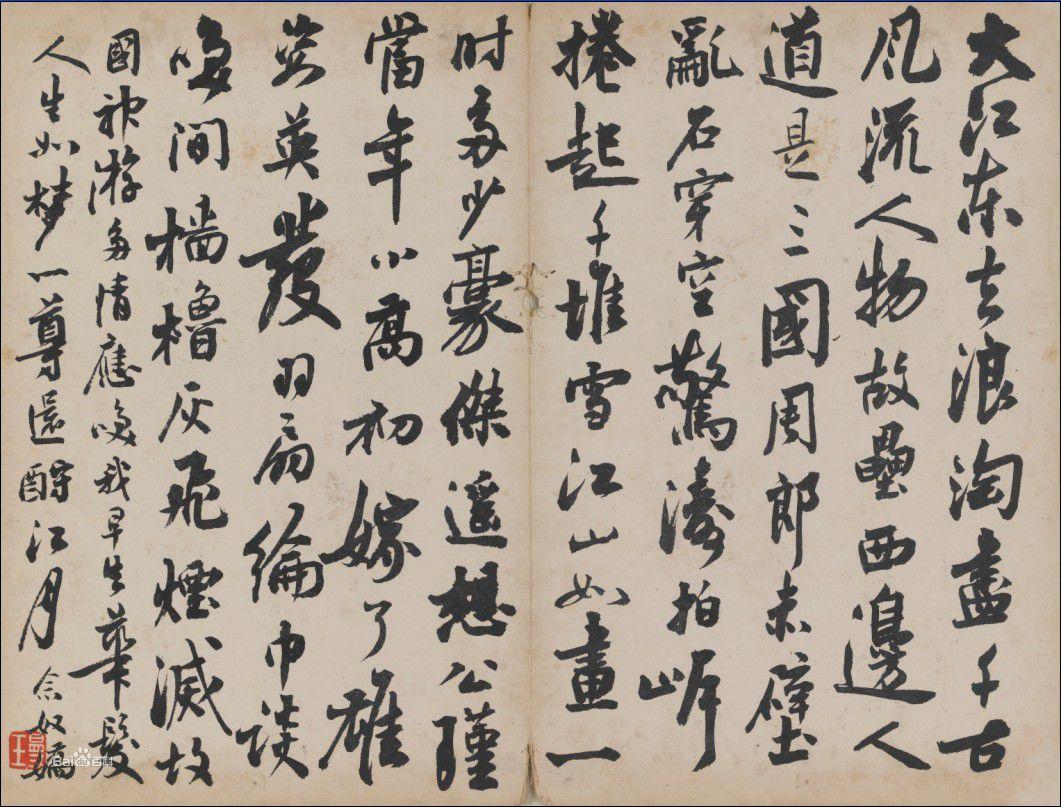 大江東去浪淘盡千古
風流人物故壘西邊人
道是三國周郎赤壁
亂石穿空驚濤拍岸
捲起千堆雪江山如畫一
时多少豪傑遥想公瑾
當年小喬初嫁了雄
姿英發羽扇綸巾談
笑間檣櫓灰飛煙滅故
國神游多情應笑我早生華髮
人生如夢一尊還酹江月 念奴嬌
Bai百科